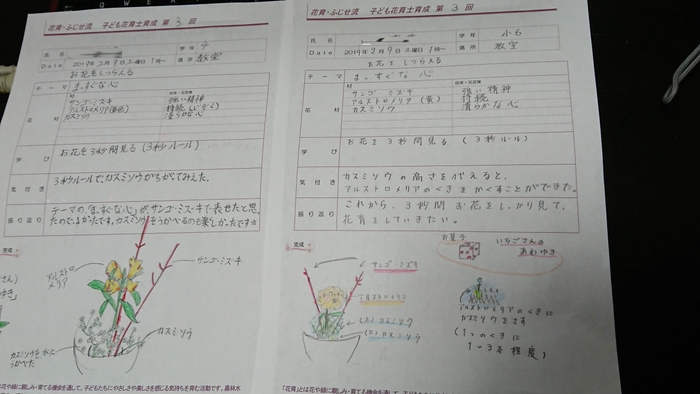 花育・ふじせ流 子ども花育士育成 第 3 回
氏名
学年
Date 2019年2月9日土曜日 1時~
場所 教室
お花をしつらえる
テーマ ま、すぐな 心
花材
サンゴ・ミズキ 強い精神
アルストロメリア(黄色) 持続(じぞく)
カスミソウ 清らかな心
学び お花を3秒間見る(3秒ルール)
気付き 3秒ルールで、カスミソウがちがってみえた。
振り返り テーマの、「ま、すぐな心」が、サンゴ・ミズ・キで表せたと思
たので、よかったです。カスミソウをうかべるのも楽しかったです
完成
アルストロメリア
サンゴ・ミズキ
カスミソウ
カスミソウを水にうかべた
花育・ふじせ流 子ども花育士育成 第 3 回
氏名
学年 小6
Date 2019年2月9日 土曜日 1時~
場所 教室
お花をしつらえる
テーマ ま、すぐな 心
花材
サンゴ ミズキ 強い精神
アルストロメリア(黄) 持続
カスミソウ 清らかな心
学び お花を3秒間見る(3秒ルール)
気付き カスミソウの高さを代えると、
アルストロメリアのくきをかくすことができた。
振り返り これから、3秒間お花をしっかり見て、
花育をしていきたい。
完成
お菓子
いちごさんの
あわゆき
サンゴ・ミズキ
アルストロメリア
(大)カスミソウ
(小)カスミソウ
アルストロメリアのくきに
カスミソウをさす
(1つのくきに
1~3本程度)